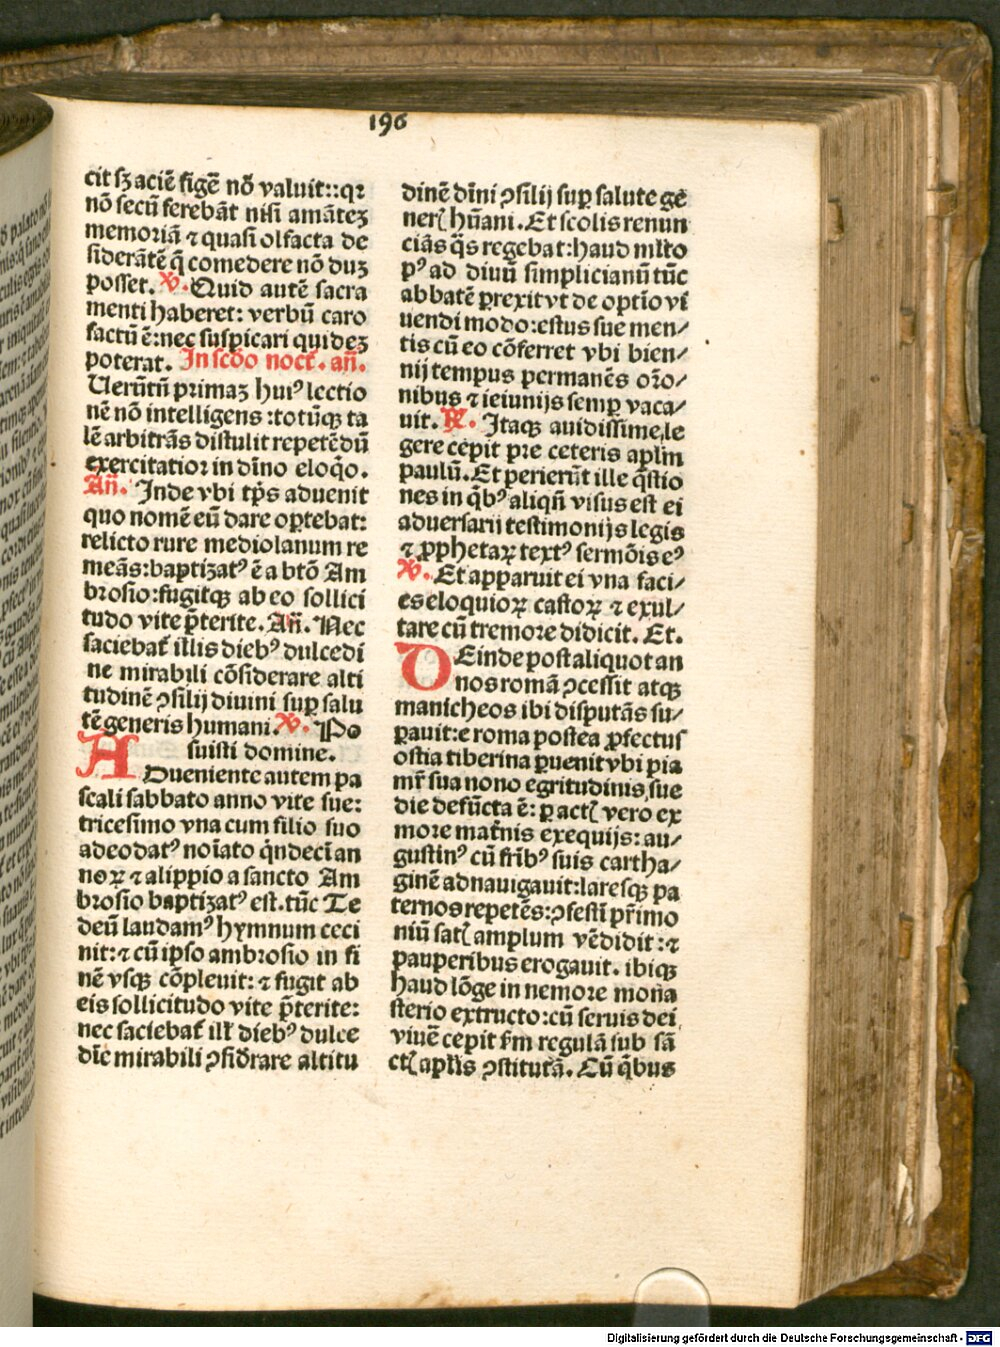 196
cit sꝫ aciē figē nō valuit: :qꝛ
nō secū ferebāt nisi amāteꝫ
memoriā ⁊ quasi olfacta de
siderātē q̄ comedere nō duꝫ
posset. V. Quid autē sacra
menti haberet: verbū caro
factū ē: nec suspicari quideꝫ
poterat. In scďo noct̄. añ.
Uerūtñ primaꝫ huiꝰ lectio
nē nō intelligens :totūqꝫ ta
lē arbitrās distulit repetēdū
exercitatior in dīno eloq̄o.
Añ. Inde vbi tp̄s aduenit
quo nomē eū dare oꝑtebat:
relicto rure mediolanum re
meās: baptizatꝰ ē a btō Am
brosio: fugitqꝫ ab eo sollici
tudo vite p̄terite. Añ. Nec
saciebat̄ illis diebꝰ dulcedi
ne mirabili cōsiderare alti
tudinē ꝯsilij diuini suꝑ salu
tē generis humani. V. Po
suisti domine.
ADueniente autem pa
scali sabbato anno vite sue:
tricesimo vna cum filio suo
adeodatꝰ noīato q̄ndecī an
noꝝ ⁊ alippio a sancto Am
brosio baptizatꝰ est. tūc Te
deū laudamꝰ hymnum ceci
nit: ⁊ cū ipso ambrosio in fi
nē vsqꝫ cōpleuit: ⁊ fugit ab
eis sollicitudo vite p̄terite:
nec saciebat̄ ill̄ diebꝰ dulce
dīe mirabili ꝯsiďrare altitu
dinē dīni ꝯsilij suꝑ salute gē
nerꝭ hūani. Et scolis renun
ciās q̄s regebat: haud ml̄to
pꝰ ad diuū simplicianū tūc
abbatē ꝑrexit vt de optīo vi
uendi modo: estus sue men/
tis cū eo cōferret vbi bien/
nij tempus permanēs orō/
nibus ⁊ ieiunijs semꝑ vaca/
uit. R. Itaqꝫ auidissime, le
gere cepit pre ceteris apl̄m
paulū. Et perierūt ille q̄stio
nes in q̄bꝰ aliqñ visus est ei
aduersarij testimonijs legis
⁊ ꝓphetaꝝ textꝰ sermōis eꝰ
V. Et apparuit ei vna faci/
es eloquioꝝ castoꝝ ⁊ exul/
tare cū tremore didicit. Et.
DEinde post aliquot an
nos romā ꝯcessit atqꝫ
manicheos ibi disputās su/
ꝑauit: e roma postea ꝓfectus
ostia tiberina ꝑuenit vbi pia
mr̄ sua nono egritudinis, sue
die defūcta ē: ꝑactꝭ vero ex
more mat̄nis exequijs: au/
gustinꝰ cū fr̄ibꝰ suis cartha/
ginē adnauigauit: laresqꝫ pa
ternos repetēs: ꝯfestī pr̄imo
niū satꝭ amplum vēdidit : ⁊
pauperibus erogauit. ibiqꝫ
haud lōge in nemore mona
sterio extructo: cū seruis dei
viuē cepit ẜm regulā sub sā
ctꝭ apl̄is ꝯstitutā. Cū q̄bus
Digitalisierung gefördert durch die Deutsche Forschungsgemeinschaft - DFG